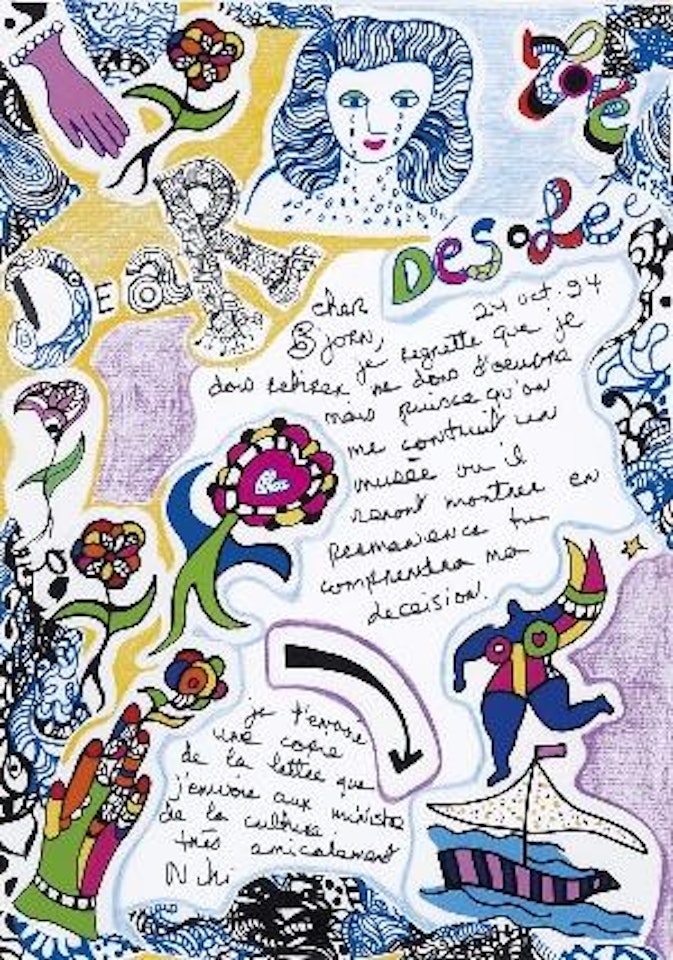 DeaR
DesoLée
cher 24 oct. 94
Bjorn,
je regrette que je
dois retirer dons d'oeuvre
mais qu'on
me contruit un
musée ou il
seront montrée en
permanence tu
comprendra ma
deceision.
je t'envoie
une copie
de la lettre que
j'envoie aux ministre
de la culture.
très amicalement
Niki